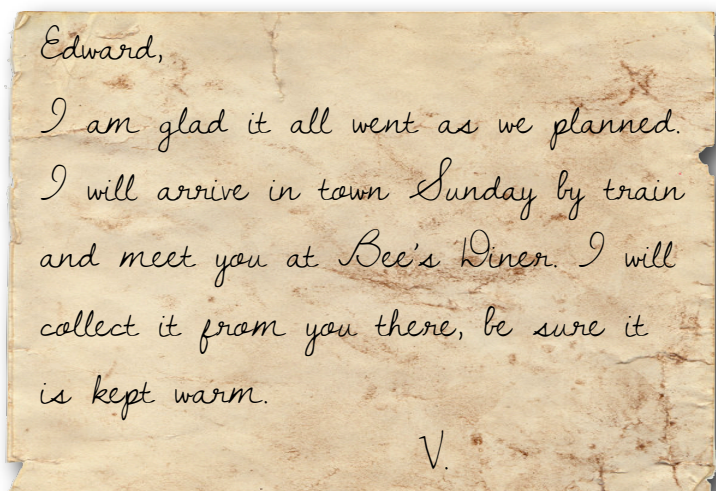 Edward,
I am glad it all went as we planned.
I will arrive in town Sunday by train
and meet you at Bee's Diner. I will
collect it from you there, be sure it
is kept warm.
V.